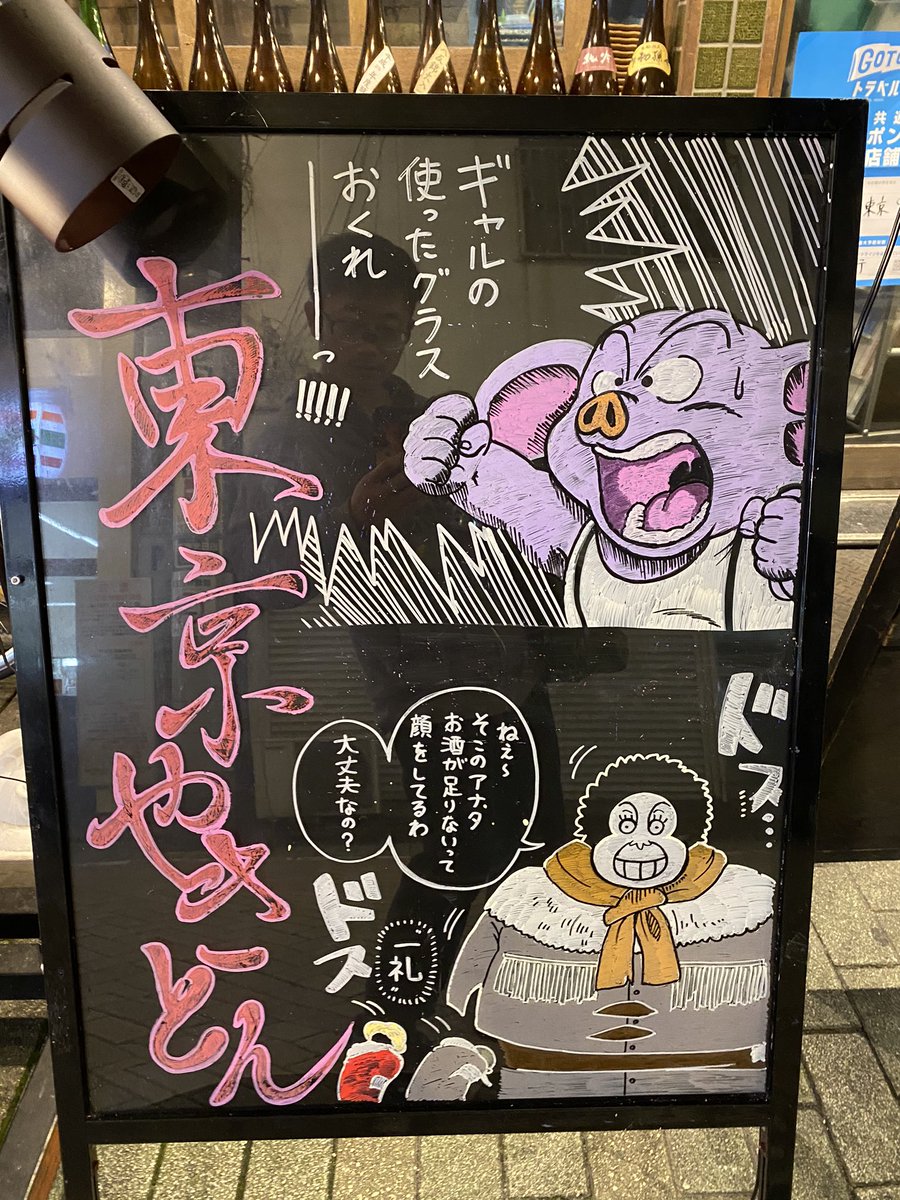 ギャルの
使ったグラス
おくれ
――っ!!!!!
東京やきとん
ドス…
ねぇ〜
そこのアナタ
お酒が足りないって
顔をしてるわ
大丈夫なの?
ドス
"一礼"
GOTO
トラベル
共通
ポン
店舗
東京